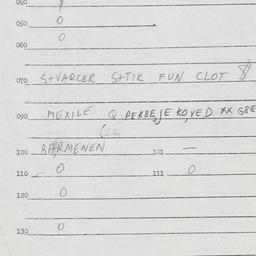 040 8
050 0
0
060
070 S+VARCER S+TIK FUN CLOT 8
090 MEXILÉ Q:PEKBE,JE KO,VED XX G8E
100 BARMENEN 101 —
110 0 111 0
120 0
0
130